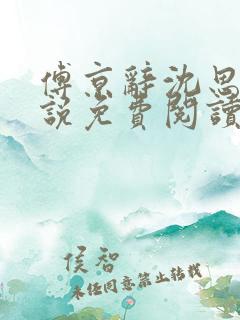 傅京辭沈思
說免費閱讀
侯智
未经同意禁止转载